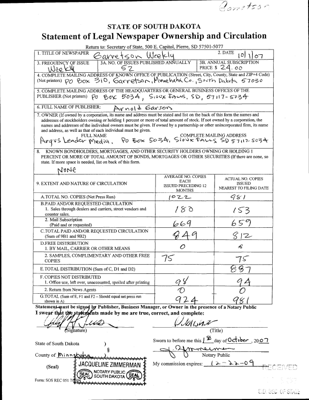 Garretson
STATE OF SOUTH DAKOTA
Statement of Legal Newspaper Ownership and Circulation
Return to: Secretary of State, 500 E. Capitol, Pierre, SD 57501-5077
1. TITLE OF NEWSPAPER Garretson Weekly 2. DATE 10/1/07
3. FREQUENCY OF ISSUE Weekly 3A. NO. OF ISSUES PUBLISHED ANNUALLY 52 3B. ANNUAL SUBSCRIPTION PRICE $ 24.00
4. COMPLETE MAILING ADDRESS OF KNOWN OFFICE OF PUBLICATION (Street, City, County, State and ZIP+4 Code)
(Not printers) PO Box 310, Garretson, Minnehaha Co., South Dakota 57030
5. COMPLETE MAILING ADDRESS OF THE HEADQUARTERS OR GENERAL BUSINESS OFFICES OF THE
PUBLISHER (Not printers) PO Box 5034, Sioux Falls, SD, 57117-5034
6. FULL NAME OF PUBLISHER: Arnold Garson
7. OWNER (If owned by a corporation, its name and address must be stated and list on the back of this form the names and
addresses of stockholders owning or holding 1 percent or more of total amount of stock. If not owned by a corporation, the
names and addresses of the individual owners must be given. If owned by a partnership or other unincorporated firm, its name
and address, as well as that of each individual must be given.
FULL NAME COMPLETE MAILING ADDRESS
Argus Leader Media, PO Box 5034, Sioux Falls, SD 57117-5034
8. KNOWN BONDHOLDERS, MORTGAGES, AND OTHER SECURITY HOLDERS OWNING OR HOLDING 1
PERCENT OR MORE OF TOTAL AMOUNT OF BONDS, MORTGAGES OR OTHER SECURITIES (If there are none, so
state. If more space is needed, list on back of this form.
NONE
9. EXTENT AND NATURE OF CIRCULATION AVERAGE NO. COPIES EACH ISSUED PRECEDING 12 MONTHS ACTUAL NO. COPIES ISSUED NEAREST TO FILING DATE
A. TOTAL NO. COPIES (Net Press Run) 1022 981
B. PAID AND/OR REQUESTED CIRCULATION
1. Sales through dealers and carriers, street vendors and counter sales. 180 153
2. Mail Subscription (Paid and or requested) 669 659
C. TOTAL PAID AND/OR REQUESTED CIRCULATION (Sum of 9B1 and 9B2) 849 812
D. FREE DISTRIBUTION
1. BY MAIL, CARRIER OR OTHER MEANS 0
2. SAMPLES, COMPLIMENTARY AND OTHER FREE COPIES 75 75
E. TOTAL DISTRIBUTION (Sum of C, D1 and D2) 887
F. COPIES NOT DISTRIBUTED
1. Office use, left over, unaccounted, spoiled after printing 98 94
2. Return from News Agents 0 0
G. TOTAL (Sum of E, F1 and F2 - Should equal net press run shown in A) 924 981
Statement must be signed by Publisher, Business Manager, or Owner in the presence of a Notary Public
I swear that the statements made by me are true, correct, and complete:
(Signature) (Title)
State of South Dakota )
Sworn to before me this 1st day of October, 2007
County of Minnehaha
Notary Public
(Seal) JACQUELINE ZIMMERMAN
NOTARY PUBLIC
SOUTH DAKOTA
SEAL SEAL
My commission expires: 12-22-09
Form: SOS REC 051